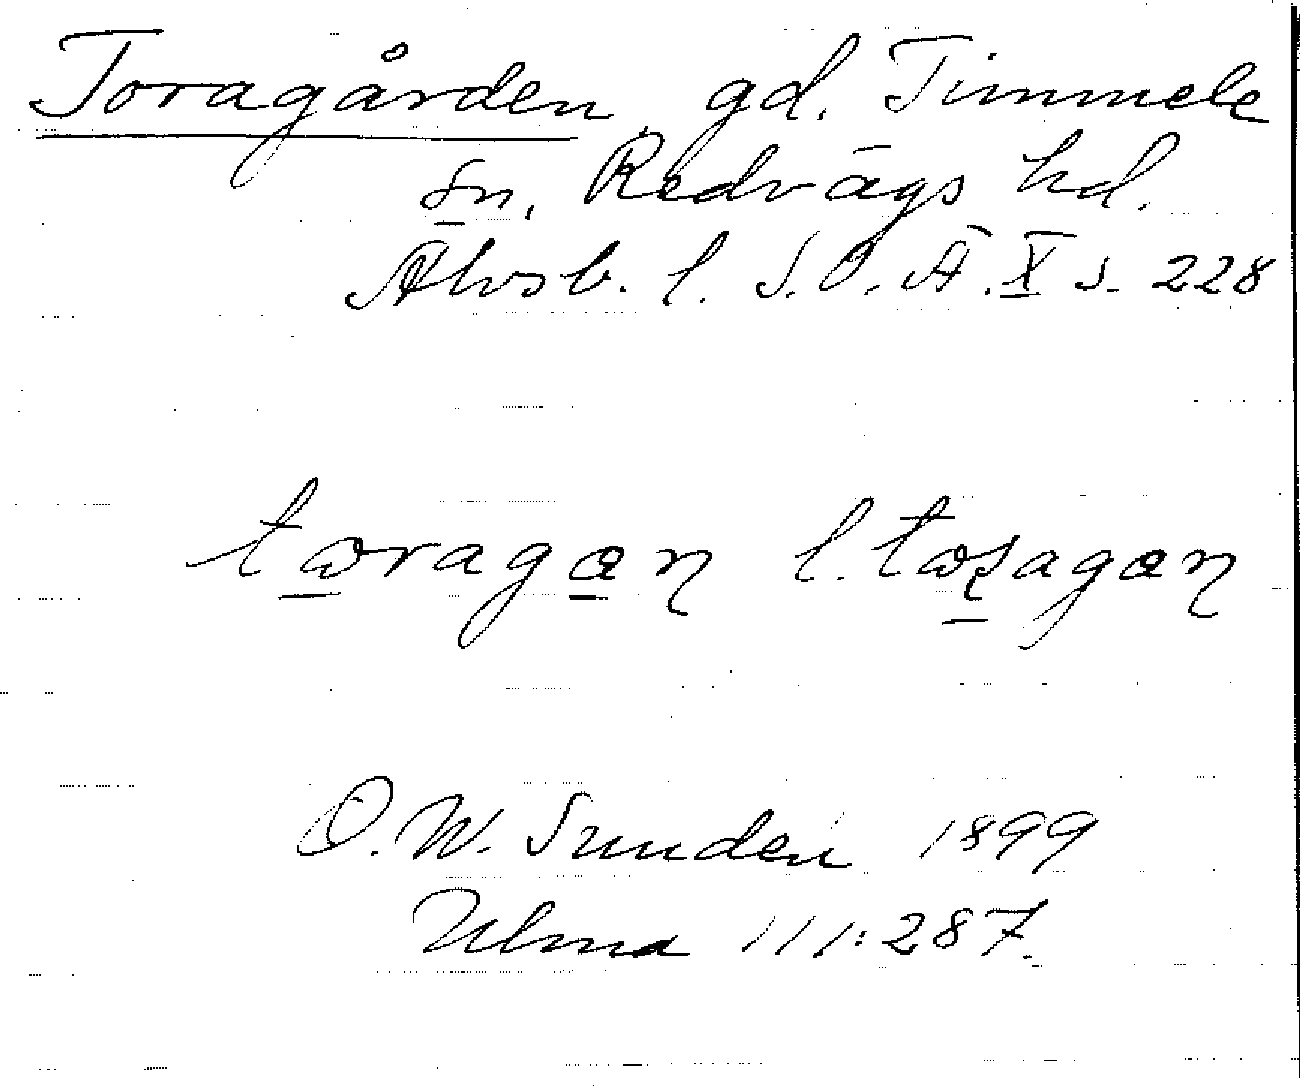 Toragården, gd. Timmele
sn, Redvägs hd.
Älvsb. l. S.O.Ä. X s. 228
toragan l. tosagan
O.W. Sundén 1899
Ulma 111:287.